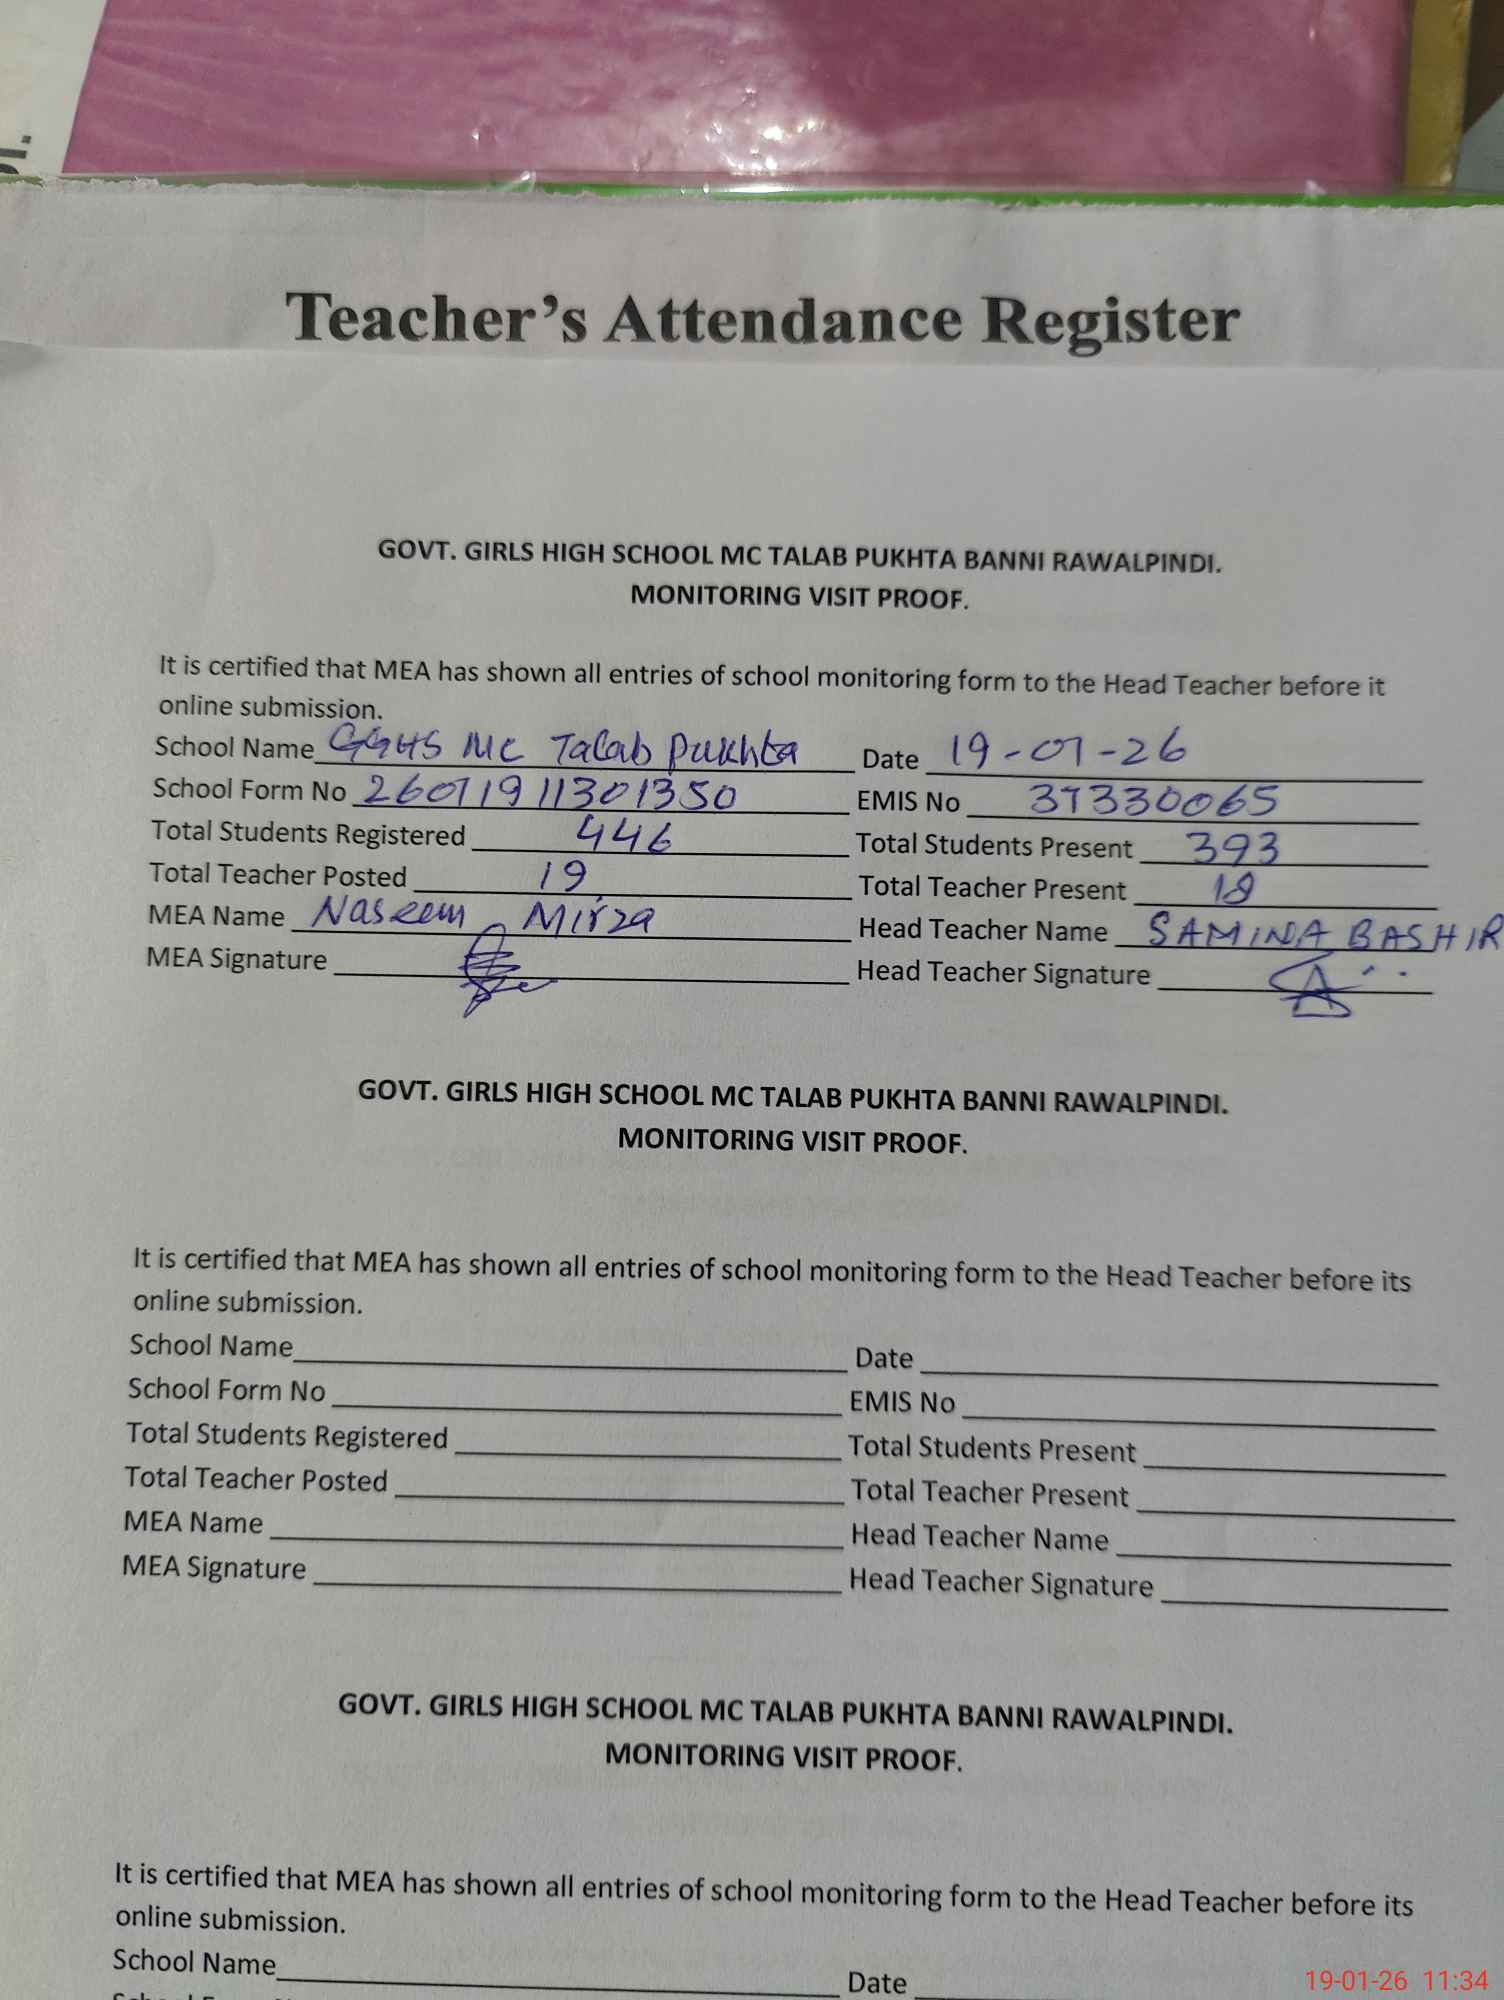 Teacher's Attendance Register
GOVT. GIRLS HIGH SCHOOL MC TALAB PUKHTA BANNI RAWALPINDI.
MONITORING VISIT PROOF.
It is certified that MEA has shown all entries of school monitoring form to the Head Teacher before it
online submission.
School Name GGHS MC Talab Pukhta Date 19-01-26
School Form No 26011911301350 EMIS No 37330065
Total Students Registered 446 Total Students Present 393
Total Teacher Posted 19 Total Teacher Present
MEA Name Naseem Mirza Head Teacher Name SAMINA BASHIR
MEA Signature Head Teacher Signature
GOVT. GIRLS HIGH SCHOOL MC TALAB PUKHTA BANNI RAWALPINDI.
MONITORING VISIT PROOF.
It is certified that MEA has shown all entries of school monitoring form to the Head Teacher before its
online submission.
School Name Date
School Form No EMIS No
Total Students Registered Total Students Present
Total Teacher Posted Total Teacher Present
MEA Name Head Teacher Name
MEA Signature Head Teacher Signature
GOVT. GIRLS HIGH SCHOOL MC TALAB PUKHTA BANNI RAWALPINDI.
MONITORING VISIT PROOF.
It is certified that MEA has shown all entries of school monitoring form to the Head Teacher before its
online submission.
School Name Date
19-01-26 11:34